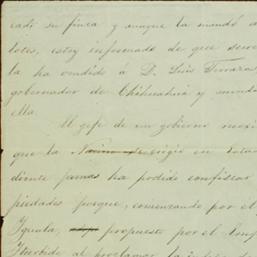 cadi su finca y aunque la mandó a
lotes, estoy informado de que
la ha vendido á D. Luis Terrazas
gobernador de Chihuahua y
ella.
El gefe de un gobierno
que la erigió en
diente jamas ha podido confiscar
piedades porque, comenzando por el
Iguala, propuesto por el
Iturbide al proclamar la